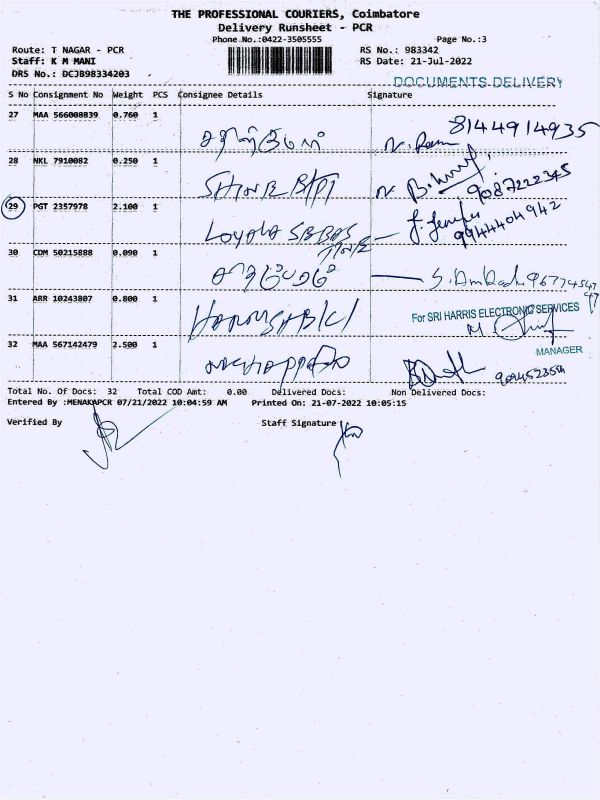 THE PROFESSIONAL COURIERS, Coimbatore
Delivery Runsheet - PCR
Phone No.:0422-3505555 Page No.:3
Route: T NAGAR - PCR RS No.: 983342
Staff: K M MANI RS Date: 21-Jul-2022
DRS No.: DCJB98334203
DOCUMENTS DELIVERY
S No Consignment No Weight PCS Consignee Details Signature
27 MAA 566008839 0.760 1 8144914935
28 NKL 7910082 0.250 1 9087222345
29 PGT 2357978 2.100 1 LOYALA 9944404942
30 CDM 50215888 0.090 1
31 ARR 10243807 0.800 1
For SRI HARRIS ELECTRONIC SERVICES
MANAGER
32 MAA 567142479 2.500 1
Total No. Of Docs: 32 Total COD Amt: 0.00 Delivered Docs: Non Delivered Docs:
Entered By :MENAKAPCR 07/21/2022 10:04:59 AM Printed On: 21-07-2022 10:05:15
Verified By Staff Signature